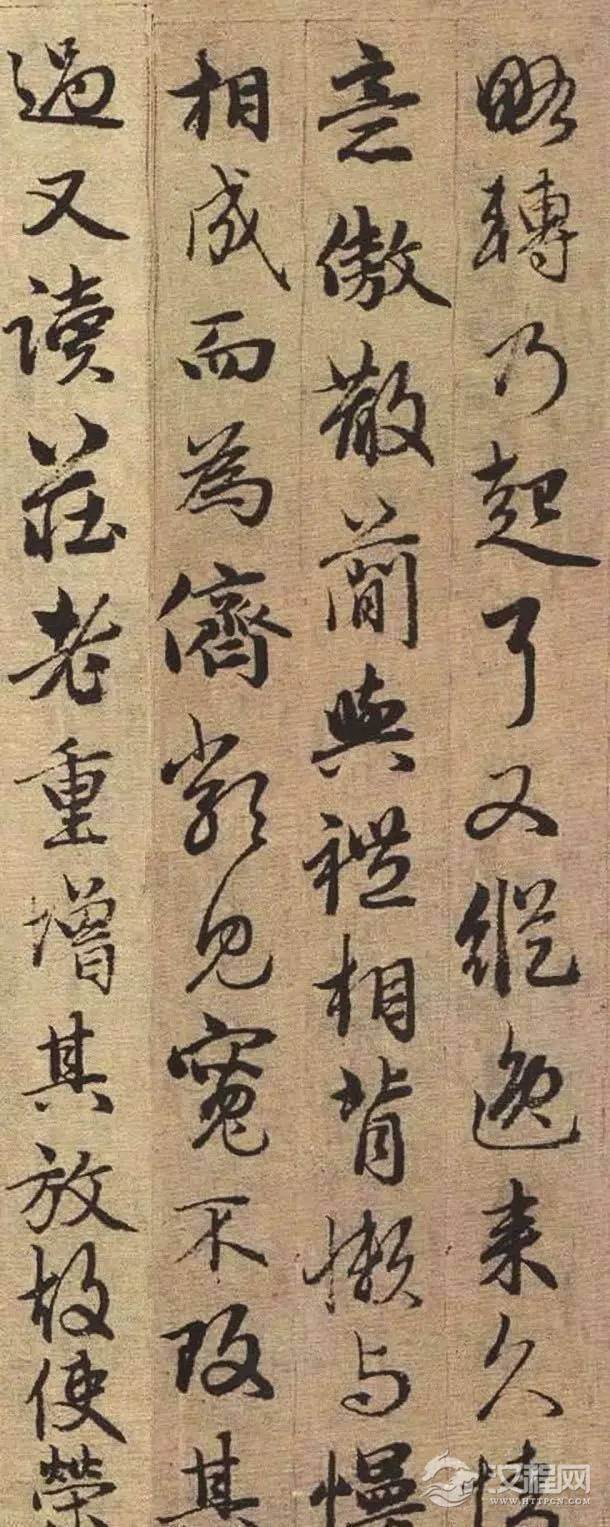 略轉乃起耳又縱逸来久情
意傲散簡與禮相背懶与慢
相成而為儕類见寬不攻其
過又读莊老重增其放故使榮
汉程网
WWW.HTTPCN.COM